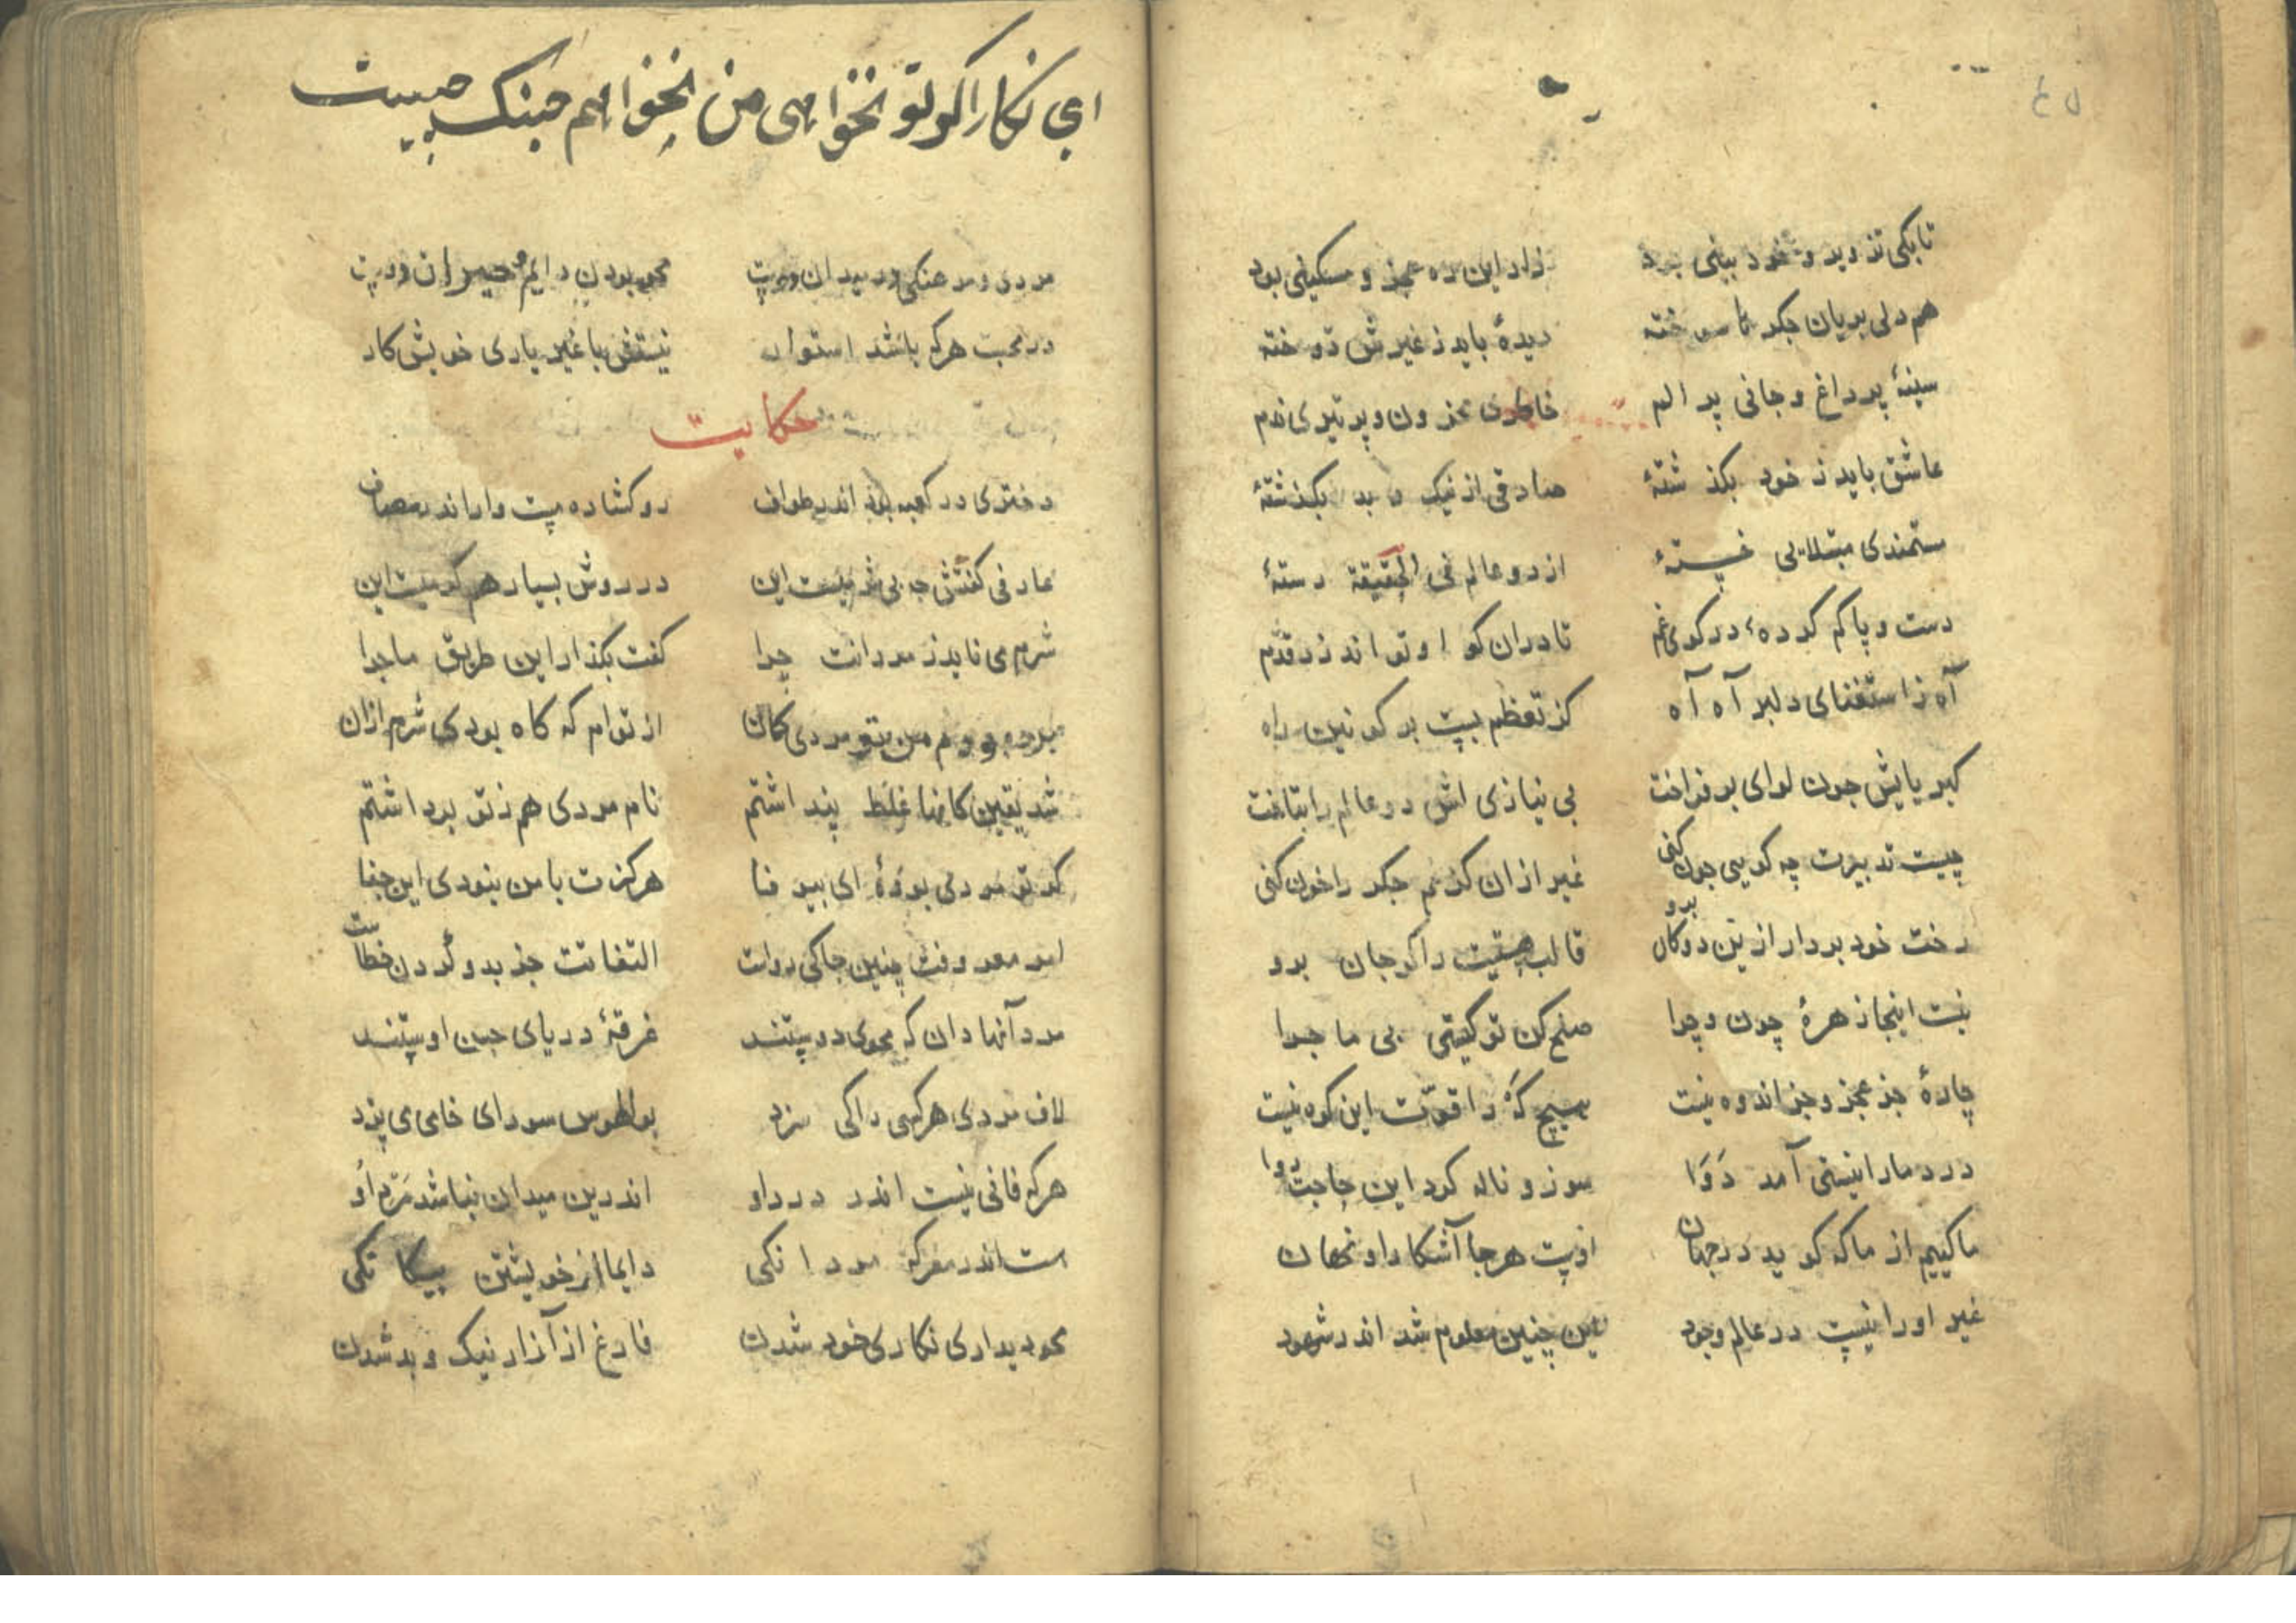 تابکی تزویر و خود بینی بود زاد این ره عجز و مسکینی بود
هم دلی بریان جکر تا سوخته دیدهٔ باید ز غیرش دوخته
سینهٔ پر داغ و جانی پر الم خاطری محزون و پر تیری ندم
عاشق باید ز خود بکذشتهٔ صادقی از نیک و بد بکذشتهٔ
ستمندی مبتلایی خستهٔ از دو عالم فی الحقیقة رستهٔ
دست و پا کم کرده در کوی غم تا دران کو او تواند زد قدم
آه ز استغنای دلبر آه آه کز تعظم بست بر کونین راه
کبریایش جون لوای بر فراخت بی نیازی اش دو عالم را بتاخت
چیست تدبیرت چه کویی جون کنی غیر ازان کز غم جکر را خون کنی
رخت خود بردار ازین دوکان برو قالب هستیت را کو جان برو
نیست اینجا زهرهٔ چون و چرا صلح کن تو کیستی بی ما جرا
چارهٔ جز عجز و جز اندوه نیست هیچ که را قوّت این کوه نیست
درد مارا نیستی آمد دَوَا سوز و ناله کرد این حاجت روا
ما کییم از ما که کوید در جهان اوست هر جا آشکارا و نهان
غیر او را نیست در عالم وجود این چنین معلوم شد اندر شهود
ای نکارا کر تو نخواهی من نخواهم جنک چیست
مردی و مردنکی در میدان دوست محو بودن دایم و حیران دوست
در محبت هرکه باشد استوار نیستش با غیر یاری خویش کار
حکایت
دختری در کعبه بد اندر طواف رو کشاده مست وار اندر مصاف
عارفی کفتش چه بی شرمیست این در روش بسیار هم کرمیست این
شرم می ناید ز مردانت چرا کفت بکذار این طریق ماجرا
من تو مردی کان از توام که کاه بودی شرم ازان
شد یقین کانها غلط پنداشتم نام مردی هم ز تو برداشتم
کر تو مردی بودهٔ ای بی وفا هرکزت با من نبودی این جفا
امر معروفت چنین جا کی رواست التفاتت جز بدو کردن خطاست
مرد آنها دان که محوی دوستند غرقهٔ دریای حسن اوستند
لاف مردی هر کسی را کی سزد بوالهوس سودای خامی می پزد
هرکه فانی نیست اندر درد او اندرین میدان نباشد مرد او
هست اندر معرکه مردانکی دایما از خویشتن بیکانکی
محو دیداری نکاری خود شدن فارغ از آزار نیک و بد شدن